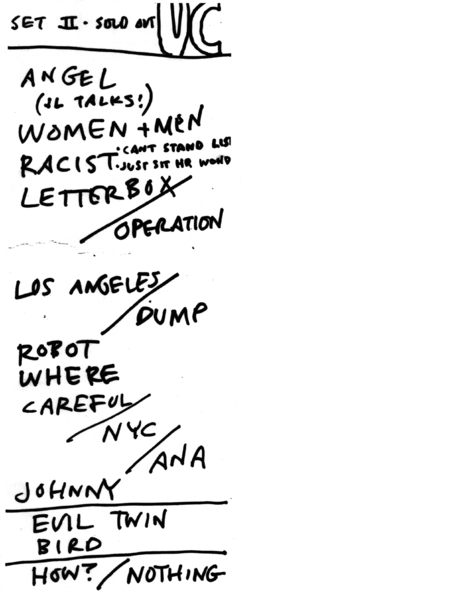 SET II · SOLD OUT UC
ANGEL
(JL TALKS!)
WOMEN + MEN
RACIST · CANT STAND LIS
· JUST SIT HR WOND
LETTERBOX /
OPERATION
LOS ANGELES /
DUMP
ROBOT
WHERE
CAREFUL /
NYC /
ANA
JOHNNY
EVIL TWIN
BIRD
HOW? / NOTHING